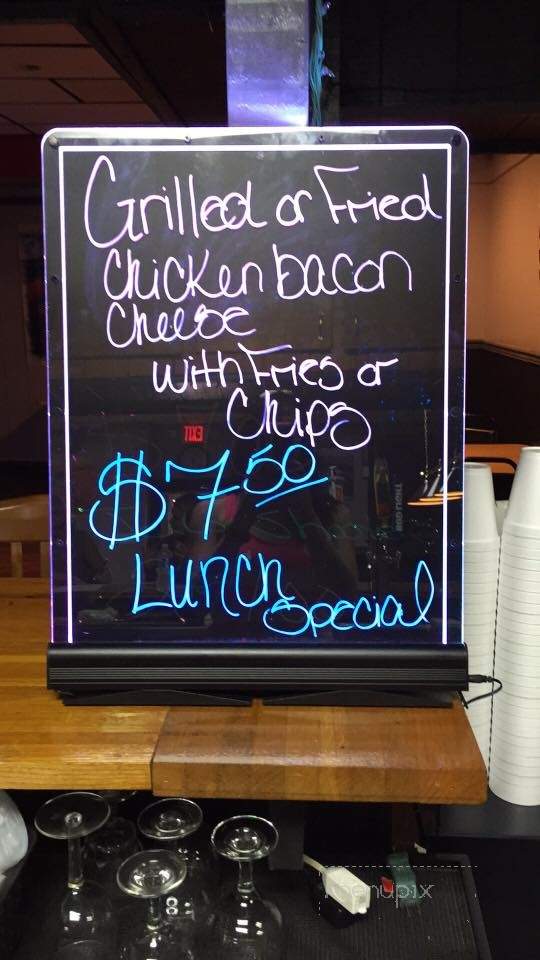 Grilled or Fried
Chicken bacon
Cheese
with Fries or
Chips
EXIT
$7.50
Lunch
Special
menupix